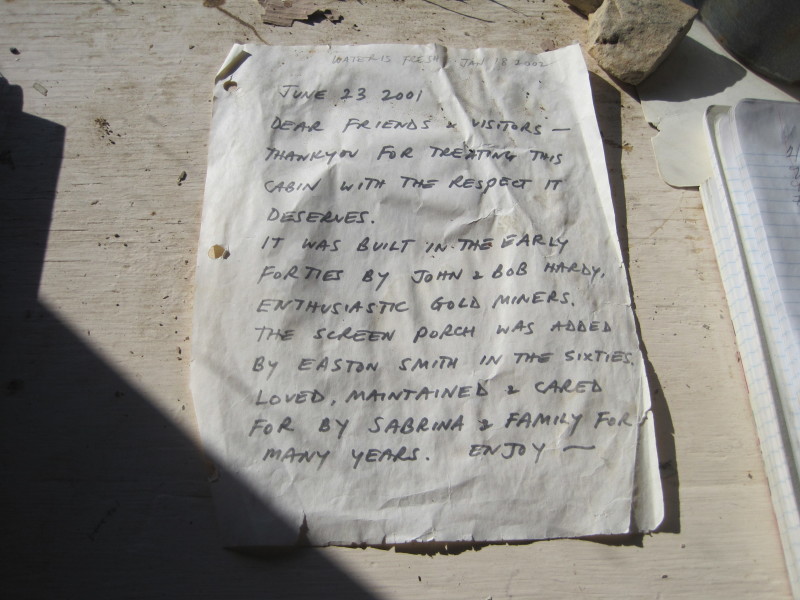 WATER IS FRESH! JAN 18 2002
JUNE 23 2001
DEAR FRIENDS & VISITORS —
THANKYOU FOR TREATING THIS
CABIN WITH THE RESPECT IT
DESERVES.
IT WAS BUILT IN THE EARLY
FORTIES BY JOHN & BOB HARDY,
ENTHUSIASTIC GOLD MINERS.
THE SCREEN PORCH WAS ADDED
BY EASTON SMITH IN THE SIXTIES.
LOVED, MAINTAINED & CARED
FOR BY SABRINA & FAMILY FOR
MANY YEARS. ENJOY —